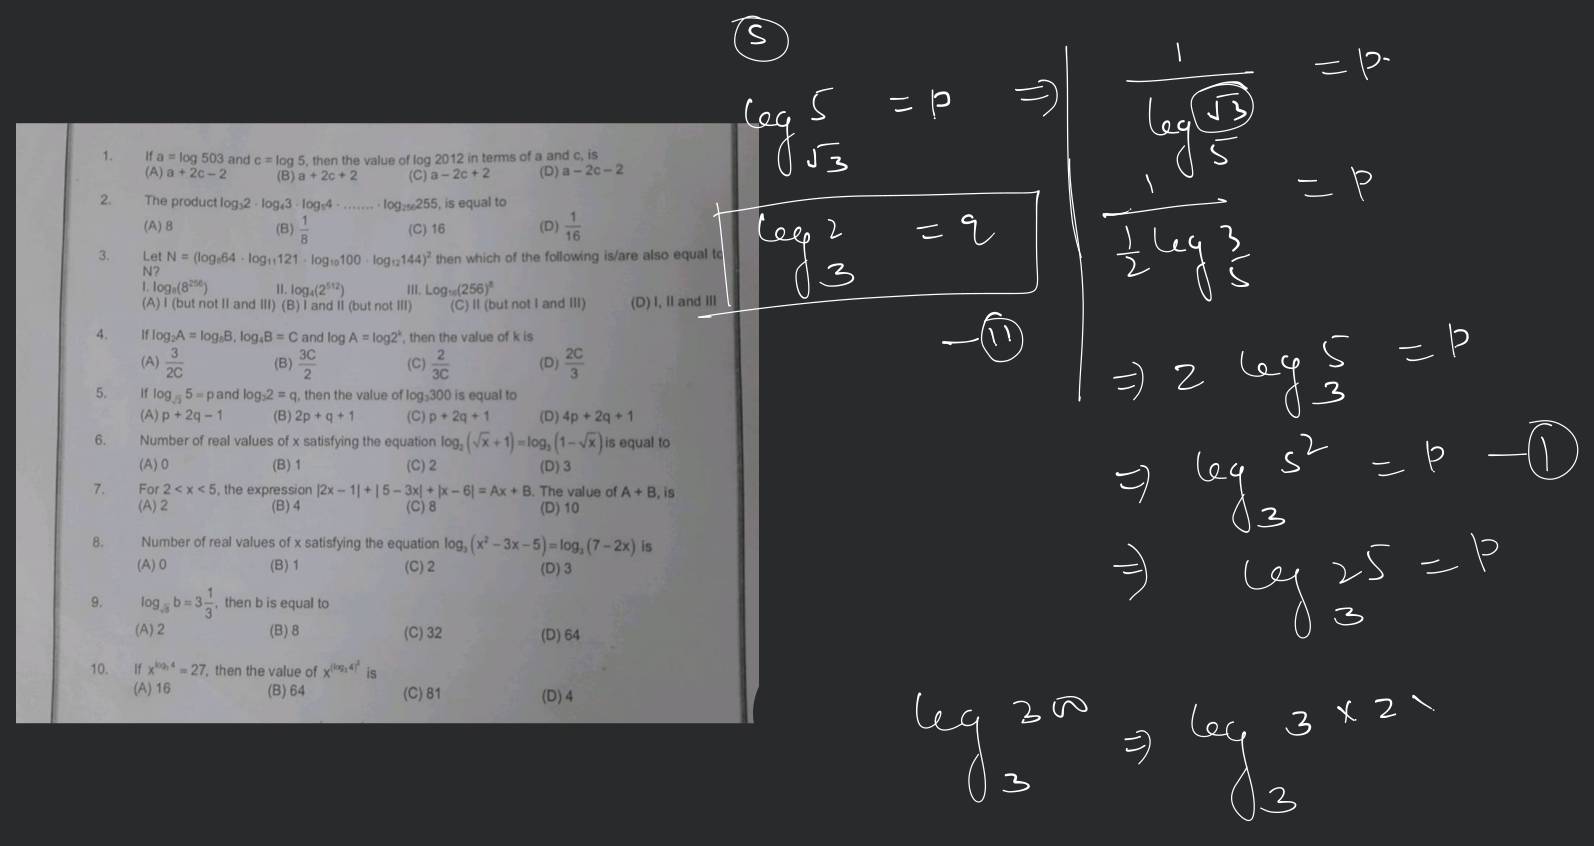 1. If a = log 503 and c = log 5, then the value of log 2012 in terms of a and c, is
(A) a + 2c – 2 (B) a + 2c + 2 (C) a – 2c + 2 (D) a – 2c – 2
2. The product log₃2 · log₄3 · log₅4 · ....... · log₂₅₆255, is equal to
(A) 8 (B) 1/8 (C) 16 (D) 1/16
3. Let N = (log₈64 · log₁₁121 · log₁₀100 · log₁₂144)² then which of the following is/are also equal to
N?
I. log₈(8²⁵⁶) II. log₄(2⁵¹²) III. Log₁₆(256)⁸
(A) I (but not II and III) (B) I and II (but not III) (C) II (but not I and III) (D) I, II and III
4. If log₂A = log₈B, log₄B = C and log A = log2ᵏ, then the value of k is
(A) 3/2C (B) 3C/2 (C) 2/3C (D) 2C/3
5. If log_√3 5 = p and log₃2 = q, then the value of log₃300 is equal to
(A) p + 2q – 1 (B) 2p + q + 1 (C) p + 2q + 1 (D) 4p + 2q + 1
6. Number of real values of x satisfying the equation log₂(√x + 1) = log₃(1 – √x) is equal to
(A) 0 (B) 1 (C) 2 (D) 3
7. For 2 < x < 5, the expression |2x – 1| + | 5 – 3x| + |x – 6| = Ax + B. The value of A + B, is
(A) 2 (B) 4 (C) 8 (D) 10
8. Number of real values of x satisfying the equation log₃(x² – 3x – 5) = log₃(7 – 2x) is
(A) 0 (B) 1 (C) 2 (D) 3
9. log_√8 b = 3 1/3, then b is equal to
(A) 2 (B) 8 (C) 32 (D) 64
10. If x^(log₃4) = 27, then the value of x^((log₃4)²) is
(A) 16 (B) 64 (C) 81 (D) 4
5
log_√3 5 = p ⇒
log₃ 2 = q
— 11
1/(log₅ √3) = p
1/(1/2 log₅ 3) = p
⇒ 2 log₃ 5 = p
⇒ log₃ 5² = p — 1
⇒ log₃ 25 = p
log₃ 300 ⇒ log₃ 3 × 2